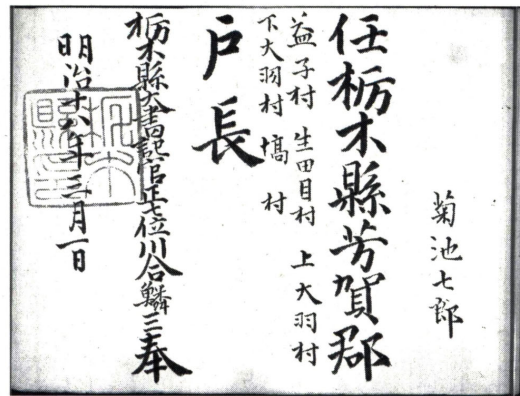 菊池七郎
任栃木縣芳賀郡
益子村 生田目村 上大羽村
下大羽村 塙村
戸長
栃木縣大書記官正七位川合鱗三奉
明治十六年三月一日
栃木縣印